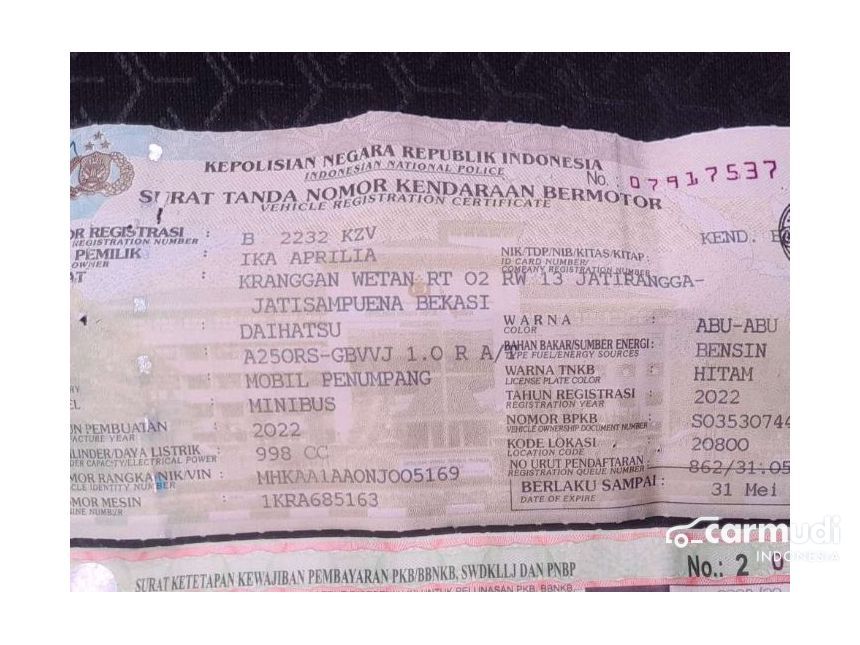 KEPOLISIAN NEGARA REPUBLIK INDONESIA
INDONESIAN NATIONAL POLICE
No. 07917537
SURAT TANDA NOMOR KENDARAAN BERMOTOR
VEHICLE REGISTRATION CERTIFICATE
OR REGISTRASI : B 2232 KZV KEND.
REGISTRATION NUMBER
PEMILIK : IKA APRILIA NIK/TDP/NIB/KITAS/KITAP :
OWNER ID CARD NUMBER/
COMPANY REGISTRATION NUMBER
AT : KRANGGAN WETAN RT 02 RW 13 JATIRANGGA-
JATISAMPUENA BEKASI
: DAIHATSU WARNA : ABU-ABU
COLOR
: A250RS-GBVVJ 1.0 R A/T BAHAN BAKAR/SUMBER ENERGI : BENSIN
TYPE FUEL/ENERGY SOURCES
: MOBIL PENUMPANG WARNA TNKB : HITAM
LICENSE PLATE COLOR
EL : MINIBUS TAHUN REGISTRASI : 2022
REGISTRATION YEAR
UN PEMBUATAN : 2022 NOMOR BPKB : S03530744
FACTURE YEAR VEHICLE OWNERSHIP DOCUMENT NUMBER
LINDER/DAYA LISTRIK : 998 CC KODE LOKASI : 20800
DER CAPACITY/ELECTRICAL POWER LOCATION CODE
MOR RANGKA/NIK/VIN : MHKAA1AAONJ005169 NO URUT PENDAFTARAN : 862/31.05
CLE IDENTITY NUMBER REGISTRATION QUEUE NUMBER
OMOR MESIN : 1KRA685163 BERLAKU SAMPAI : 31 Mei
INE NUMBER DATE OF EXPIRE
carmudi
INDONESIA
SURAT KETETAPAN KEWAJIBAN PEMBAYARAN PKB/BBNKB, SWDKLLJ DAN PNBP No.: 2 0